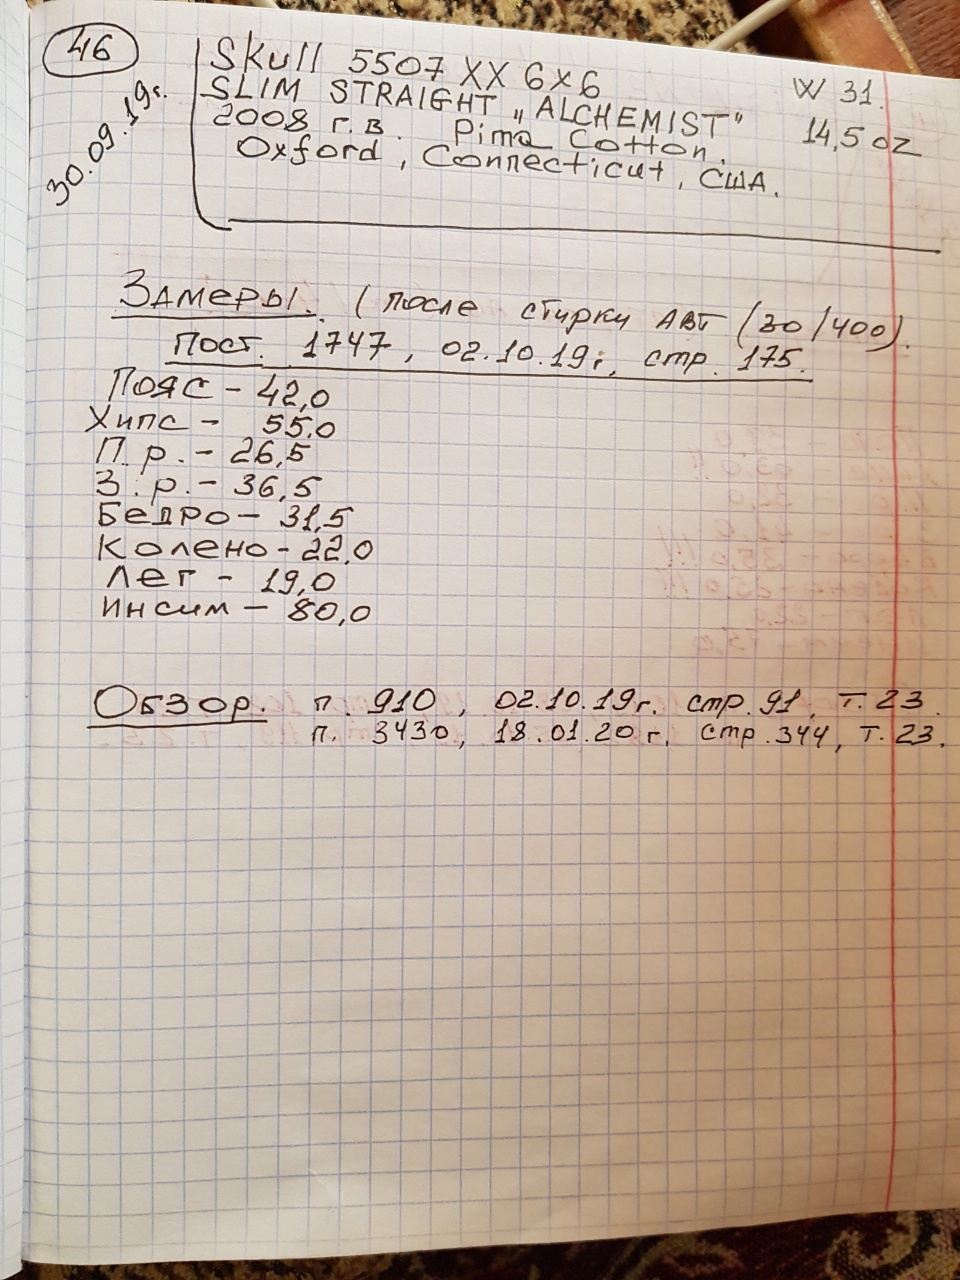 46
30.09.19г.
Skull 5507 XX 6x6 W 31.
SLIM STRAIGHT „ALCHEMIST" 14,5 oz
2008 г.в. Pima Cotton.
Oxford, Connecticut, США.
Замеры. (после стирки АВТ (30/400).
Пост. 1747, 02.10.19г, стр. 175.
Пояс - 42,0
Хипс - 55,0
П.р. - 26,5
З.р. - 36,5
Бедро - 31,5
Колено - 22,0
Лег - 19,0
Инсим - 80,0
Обзор. п. 910, 02.10.19г. стр. 91, т. 23.
п. 3430, 18.01.20г. стр. 344, т. 23.